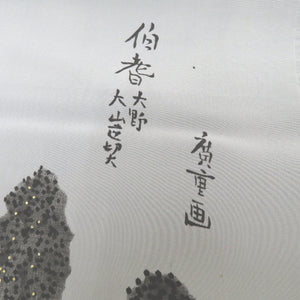 伯耆
大野
大山遠望
廣重画